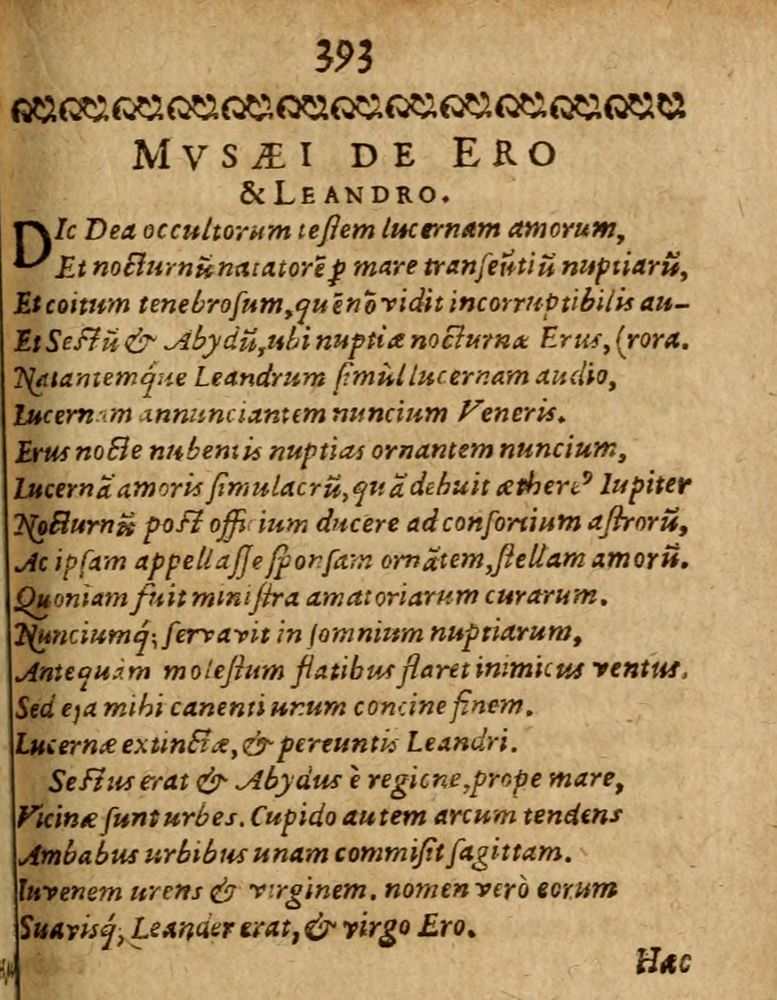 393
MVSÆI DE ERO
& LEANDRO.
DIc Dea occultorum teſtem lucernam amorum,
Et nocturnũ natatorẽ ꝑ mare tranſeũtiũ nuptiarũ,
Et coitum tenebroſum, quẽ nõ vidit incorruptibilis au-
Et Seſtũ & Abydũ, ubi nuptiæ nocturnæ Erus, (rora.
Natantemq́ue Leandrum ſimùl lucernam audio,
Lucernam annunciantem nuncium Veneris.
Erus nocte nubentis nuptias ornantem nuncium,
Lucernã amoris ſimulacrũ, quã debuit ætherẽꝰ Iupiter
Nocturnũ poſt officium ducere ad conſortium aſtrorũ,
Ac ipſam appellaſſe ſponſam ornãtem, ſtellam amorũ.
Quoniam fuit miniſtra amatoriarum curarum.
Nunciumq́; ſervavit inſomnium nuptiarum,
Antequàm moleſtum flatibus flaret inimicus ventus.
Sed eja mihi canenti unum concine finem.
Lucernæ extinctæ, & pereuntis Leandri.
Seſtus erat & Abydus è regione, prope mare,
Vicinæ ſunt urbes. Cupido autem arcum tendens
Ambabus urbibus unam commiſit ſagittam.
Iuvenem urens & virginem. nomen verò eorum
Suavisq́; Leander erat, & virgo Ero.
Hac